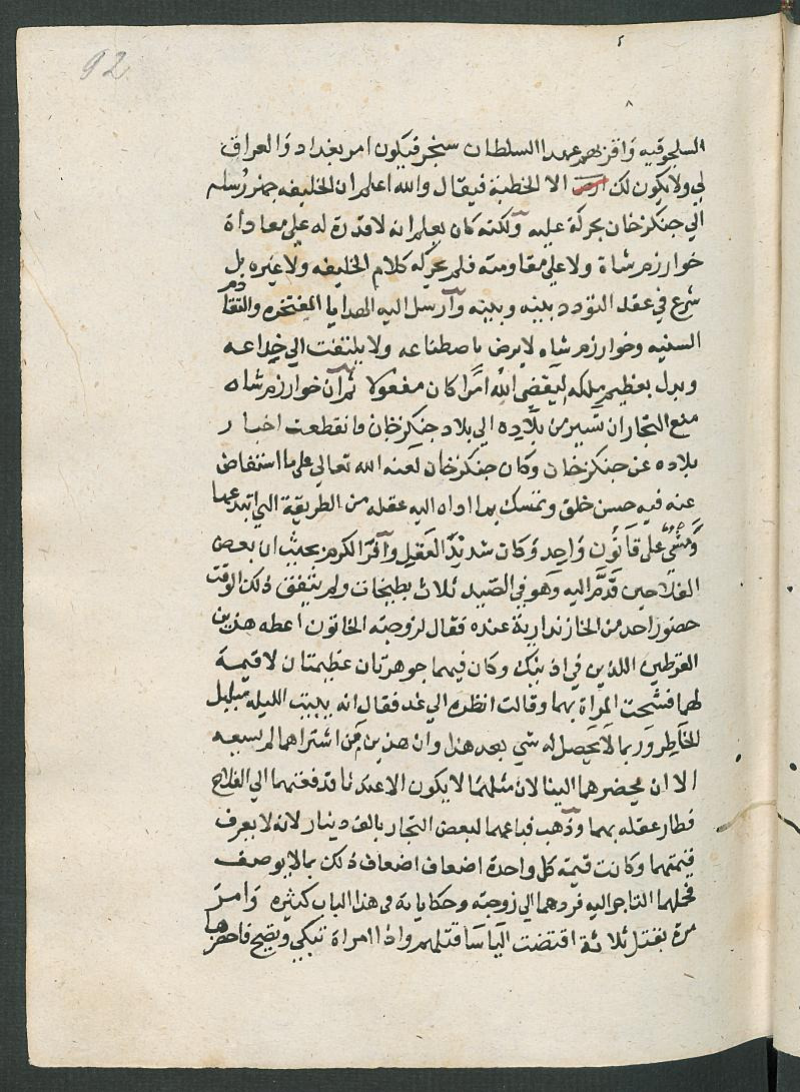 92
السلجوقيه واقربهم عهدا السلطان سنجر فيكون امر بغداد والعراق
لي ولا يكون لك الا الخطبة فيقال والله اعلم ان الخليفه جهز رسله
الي جنكزخان يحركة عليه ولكنه كان يعلم انه لا قدرة له علي معاداة
خوارزم شاة ولا علي مقاومته فلم يحركه كلام الخليفه ولا غيره بل
شرع في عقد التودد بينه وبينه وآرسل اليه الهدايا المفتخره والتقادم
السنيه وخوارزم شاه لا يرض باصطناعه ولا يلتفت الي خداعه
وبدل بعظيم ملكه ليقضي الله امرا كان مفعولا ثم آن خوارزم شاه
منع التجار ان تسير من بلاده الي بلاد جنكزخان وانقطعت اخبار
بلاده عن جنكزخان وكان جنكزخان لعنه الله تعالي علي ما استفاض
عنه فيه حسن خلق وتمسك بما اداه اليه عقله من الطريقة التي ابتدعها
ومشي علي قانون واحد وكان شديد العقل وآفر الكرم بحيث ان بعض
الفلاحين قدم اليه وهو في الصيد ثلاث بطيخات ولم يتفق ذلك الوقت
حضور احد من الخازندارية عنده فقال لزوجته الخاتون اعطه هذين
القرطين اللذين في اذنيك وكان فيهما جوهرتان عظيمتان لا قيمة
لهما فشحت المراة بهما وقالت انظره الي غد فقال انه يبيت الليله مبلبل
الخاطر وربما لا يحصل له شي بعد هذا وان هذين من اشتراهما لم يسعه
الا ان يحضرهما الينا لان مثلهما لا يكون الا عندنا فدفعتهما الي الفلاح
فطار عقله بهما وذهب فباعهما لبعض التجار بالف دينار لانه لا يعرف
قيمتهما وكانت قيمة كل واحدة اضعاف اضعاف ذلك بما لا يوصف
فحملهما التاجر اليه فردهما الي زوجته وحكاياته في هذا الباب كثيره وامر
مرة بقتل ثلاثة اقتضت اليآسا قتلهم واذا امراة تبكي وتصيح فاحضرها